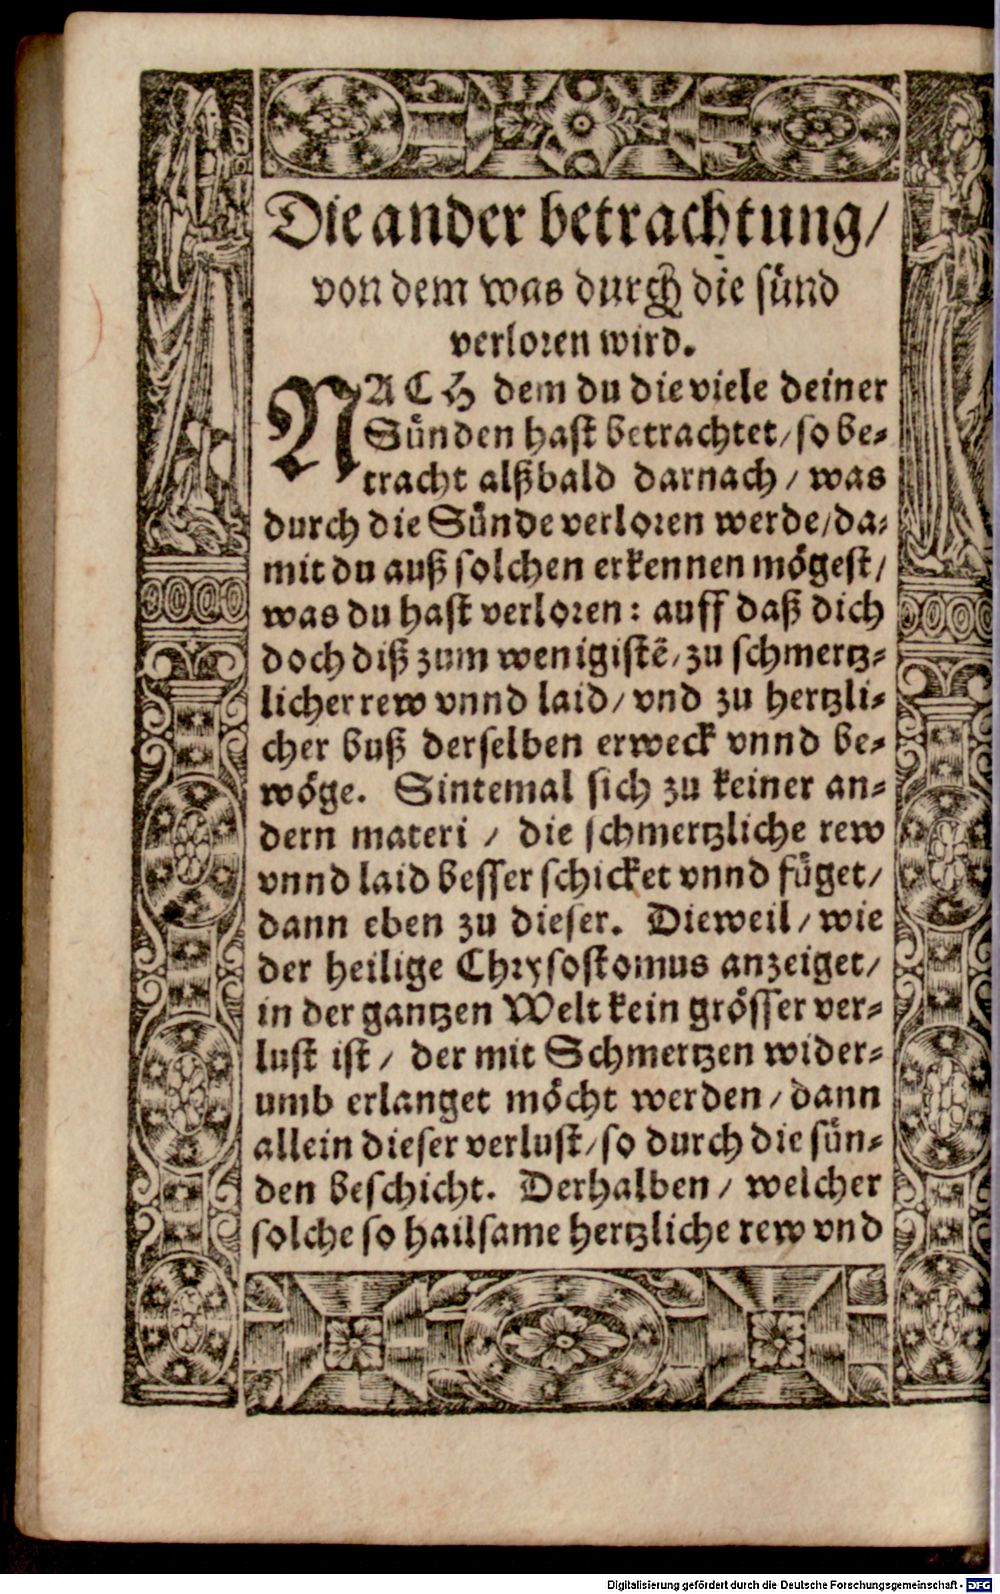 Die ander betrachtung/
von dem was durch die sünd
verloren wird.
NACH dem du die viele deiner
Sünden hast betrachtet/ so be-
tracht alßbald darnach/ was
durch die Sünde verloren werde/ da-
mit du auß solchen erkennen mögest/
was du hast verloren: auff daß dich
doch diß zum wenigistē/ zu schmertz-
licher rew vnnd laid/ vnd zu hertzli-
cher buß derselben erweck vnnd be-
wöge. Sintemal sich zu keiner an-
dern materi / die schmertzliche rew
vnnd laid besser schicket vnnd füget/
dann eben zu dieser. Dieweil/ wie
der heilige Chrysostomus anzeiget/
in der gantzen Welt kein grösser ver-
lust ist/ der mit Schmertzen wider-
umb erlanget möcht werden/ dann
allein dieser verlust/ so durch die sün-
den beschicht. Derhalben/ welcher
solche so hailsame hertzliche rew vnd
Digitalisierung gefördert durch die Deutsche Forschungsgemeinschaft - DFG